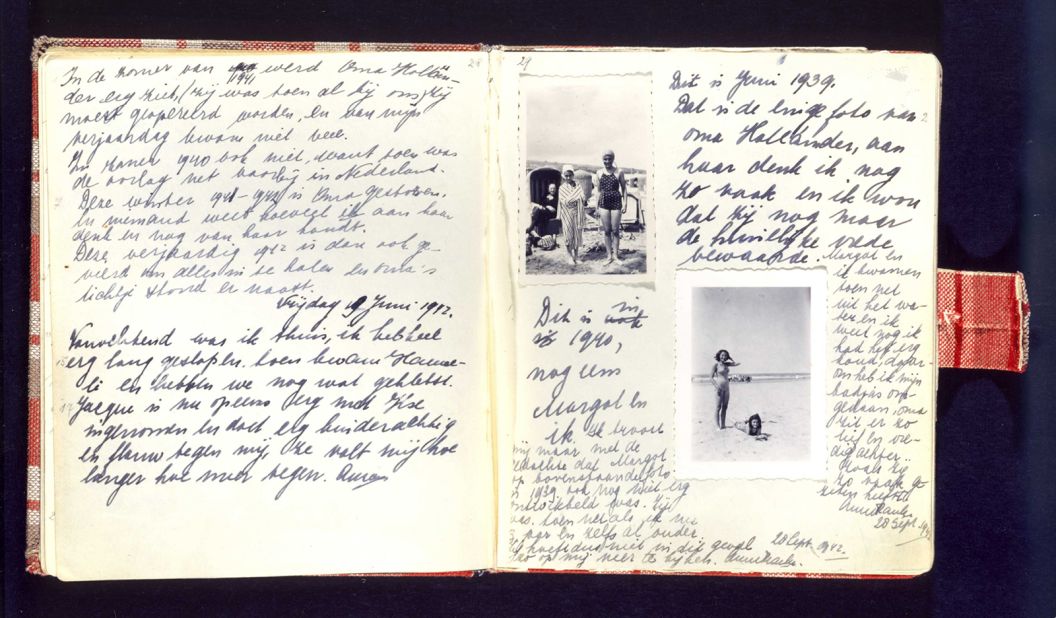 28
In de zomer van 1941 werd Oma Hollän-
der erg ziek, (zij was toen al bij ons) zij
moest geopereerd worden, en van mijn
verjaardag kwam niet veel.
In zomer 1940 ook niet, want toen was
de oorlog net voorbij in Nederland.
Deze winter 1941-1942 is Oma gestorven.
En niemand weet hoeveel ik aan haar
denk en nog van haar houdt.
Deze verjaardag 1942 is dan ook ge-
vierd om alles in te halen en oma's
lichtje stond er naast.
Vrijdag 19 Juni 1942.
Vanochtend was ik thuis, ik heb heel
erg lang geslapen, toen kwam Hanne-
li en hebben we nog wat gekletst.
Jacque is nu opeens erg met Ilse
ingenomen en doet erg kinderachtig
en flauw tegen mij, ze valt mij hoe
langer hoe meer tegen.
29
Dit is Juni 1939.
Dat is de enige foto van
oma Holländer, aan
haar denk ik nog
zo vaak en ik wou
dat zij nog maar
de huiselijke vrede
bewaarde.
Margot en
ik kwamen
toen net
uit het wa-
ter en ik
weet nog ik
had het erg
koud, daar-
om heb ik mijn
badjas om-
gedaan, oma
zit er zo
lief en vre-
dig achter.
Zoals zij
zo vaak ge-
zeten heeft.
Anne Frank.
28 Sept. 1942
Dit is in
1940,
nog eens
Margot en
ik. Ik troost
mij maar met de
gedachte dat Margot
op bovenstaande foto
in 1939 ook nog niet erg
ontwikkeld was. Zij
was toen net als ik nu
jaar en zelfs al ouder.
hoeft dus niet in dit geval
zo op mij neer te kijken. Anne Frank.
28 Sept. 1942.